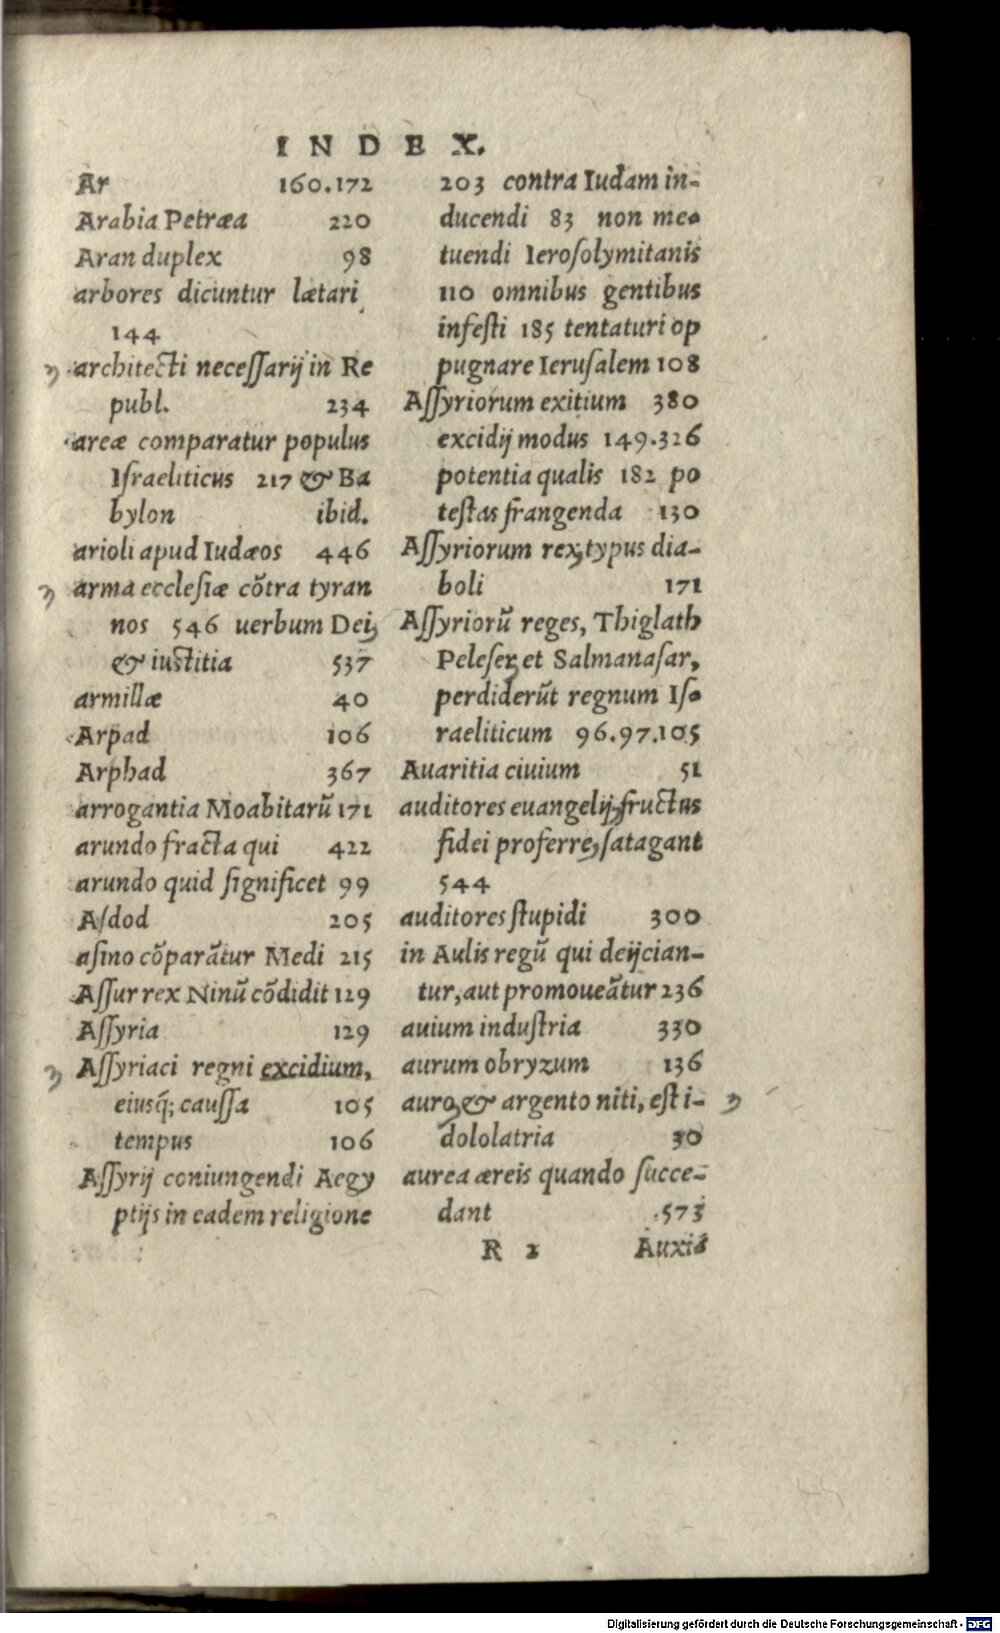 INDEX.
Ar 160.172
Arabia Petræa 220
Aran duplex 98
arbores dicuntur lætari
144
architecti neceſſarij in Re
publ. 234
areæ comparatur populus
Iſraeliticus 217 & Ba
bylon ibid.
arioli apud Iudæos 446
arma eccleſiæ cõtra tyran
nos 546 uerbum Dei,
& iuſtitia 537
armillæ 40
Arpad 106
Arphad 367
arrogantia Moabitarũ 171
arundo fracta qui 422
arundo quid ſignificet 99
Aſdod 205
aſino cõparãtur Medi 215
Aſſur rex Ninũ cõdidit 129
Aſſyria 129
Aſſyriaci regni excidium,
eiusq́; cauſſa 105
tempus 106
Aſſyrij coniungendi Aegy
ptijs in eadem religione
203 contra Iudam in-
ducendi 83 non me-
tuendi Ieroſolymitanis
110 omnibus gentibus
infeſti 185 tentaturi op
pugnare Ieruſalem 108
Aſſyriorum exitium 380
excidij modus 149.326
potentia qualis 182 po
teſtas frangenda 130
Aſſyriorum rex, typus dia-
boli 171
Aſſyriorũ reges, Thiglath
Peleſer, et Salmanaſar,
perdiderũt regnum Iſ-
raeliticum 96.97.105
Auaritia ciuium 51
auditores euangelij, fructus
fidei proferre, ſatagant
544
auditores ſtupidi 300
in Aulis regũ qui deijcian-
tur, aut promoueãtur 236
auium induſtria 330
aurum obryzum 136
auro, & argento niti, eſt i-
dololatria 30
aurea æreis quando ſucce-
dant 573
R 2 Auxiã
Digitalisierung gefördert durch die Deutsche Forschungsgemeinschaft - DFG